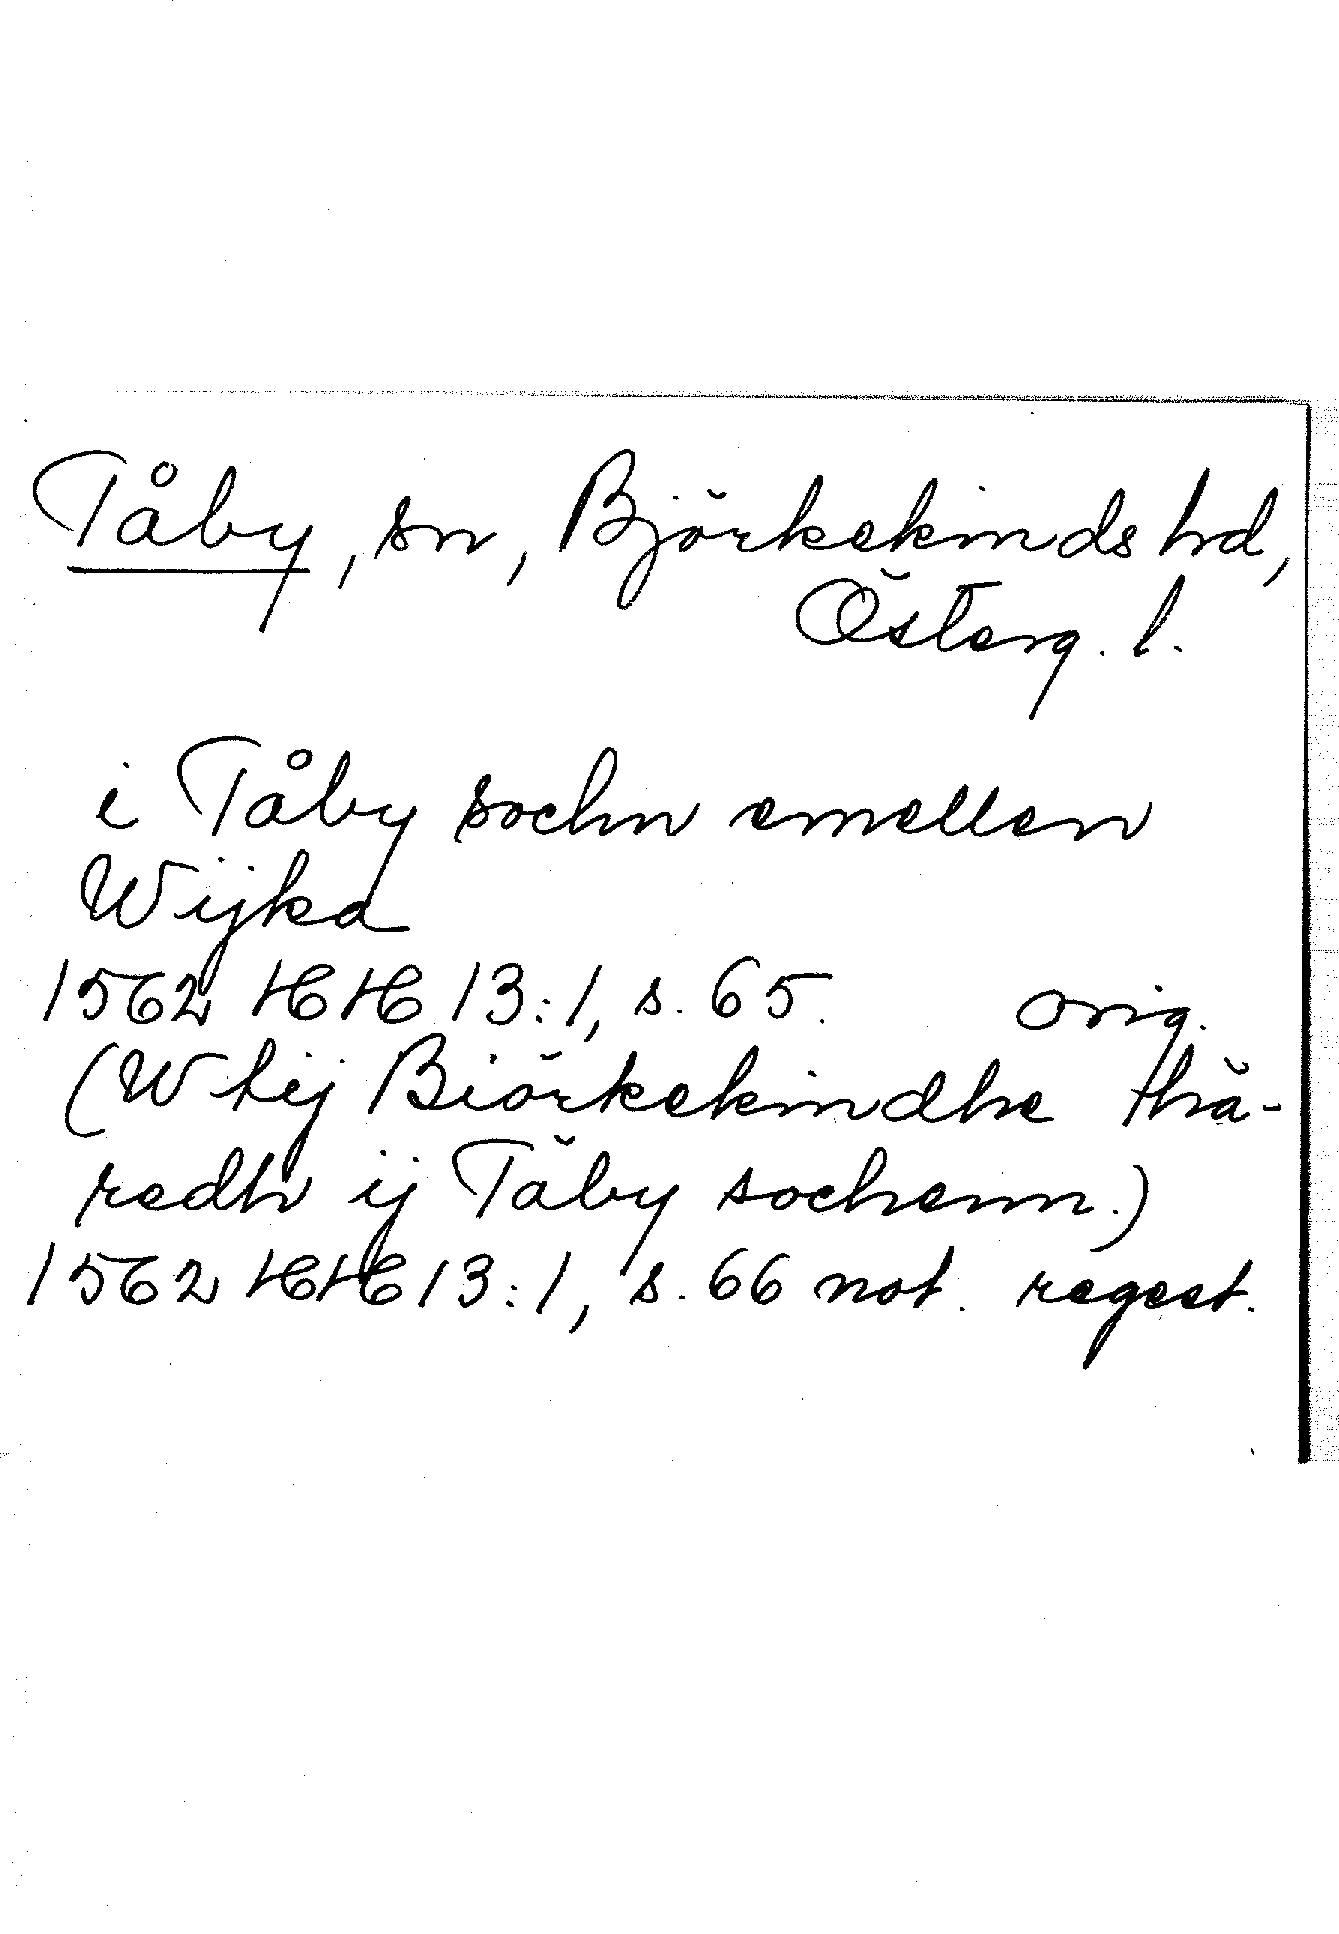 Tåby, sn, Björkekinds hd,
Österg. l.
i Tåby sochn emellen
Wijka
1562 HH 13:1, s. 65. orig.
(W tij Biörkekindhe Hä-
redh ij Täby sochenn.)
1562 HH 13:1, s. 66 not. regest.